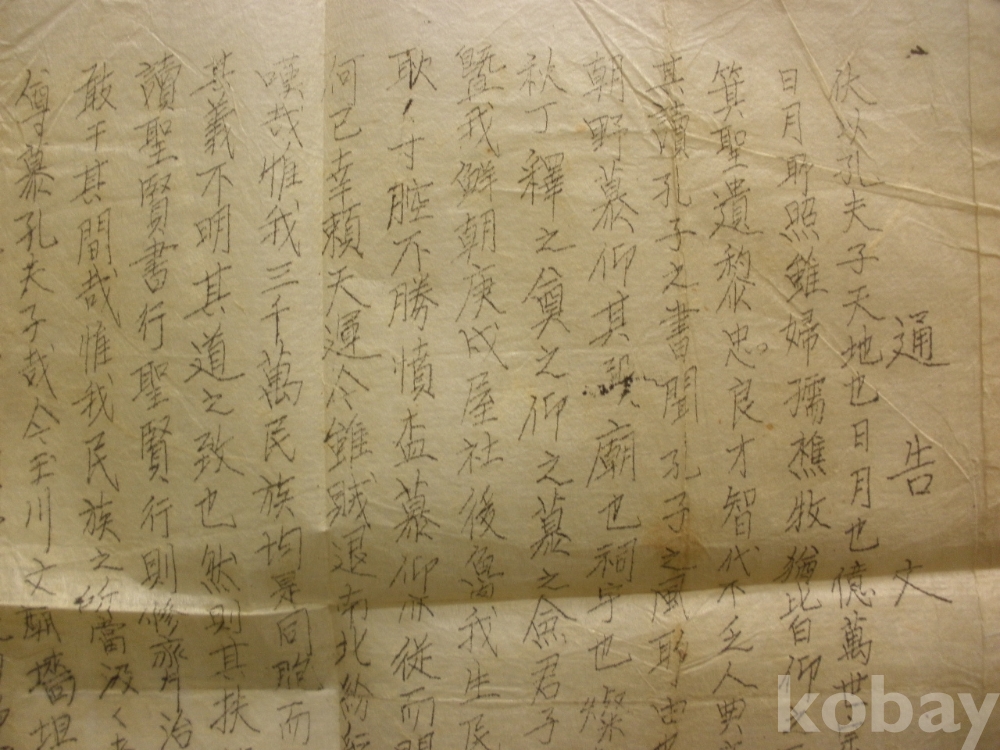 通告文
伏以孔夫子天地也日月也億萬世
日月所照雖婦孺樵牧猶皆自仰
箕聖遺黎忠良才智代不乏人
其讀孔子之書聞孔子之風
朝野慕仰其廟也祠宇也燦
秋丁釋之奠之仰之慕之僉君子
曁我鮮朝庚戌屋社後我生民
耿耿寸腔不勝憤盃慕仰從而
何已幸賴天運今雖賊退南北紛
嘆哉惟我三千萬民族均是同胞而
其義不明其道之致也然則其扶
讀聖賢書行聖賢行則修齊治
敢干其間哉惟我民族之所當汲汲
慕孔夫子哉今玉川文廟
kobay